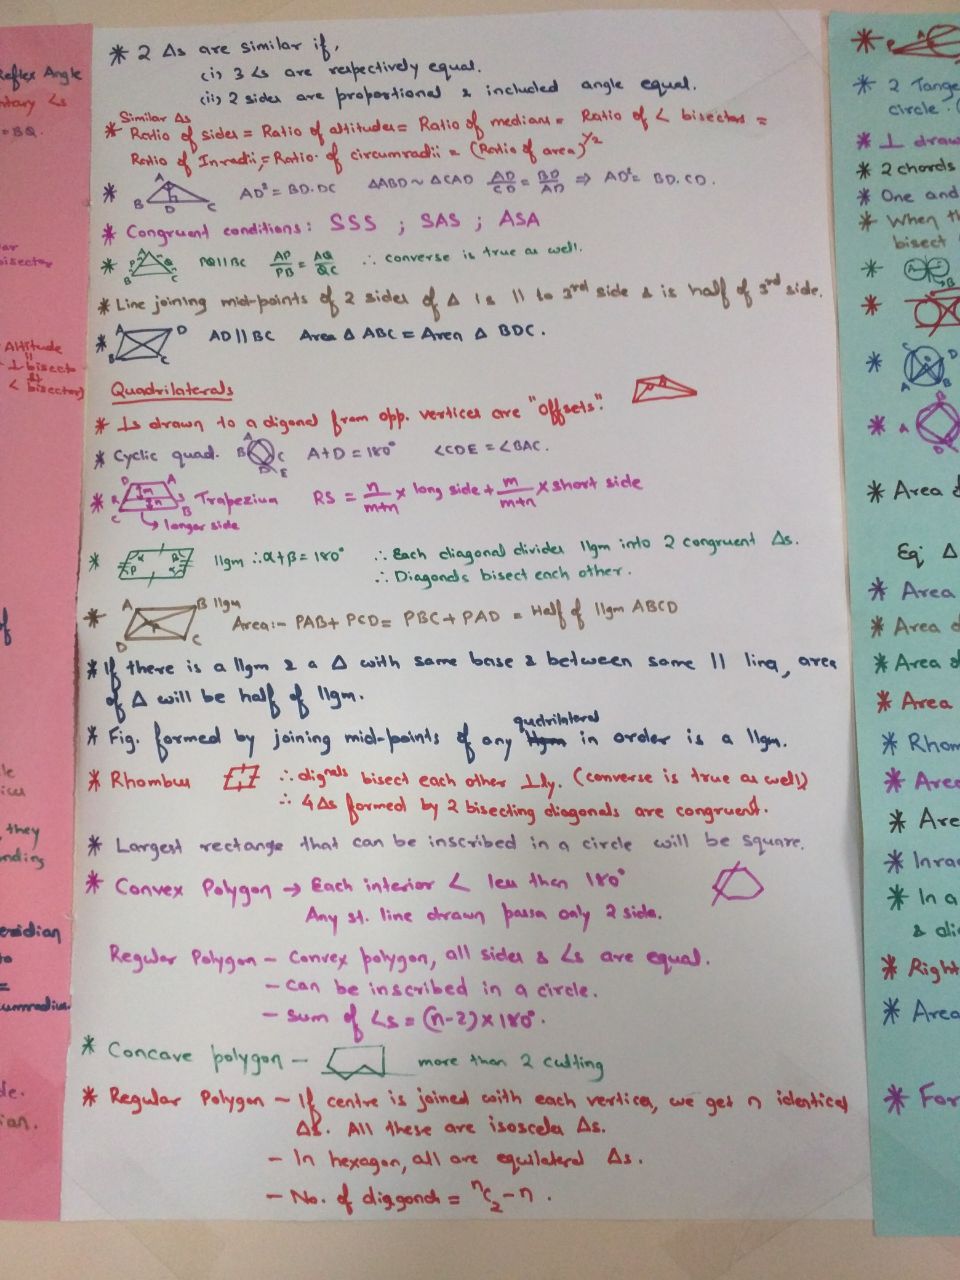 * 2 Δs are similar if,
(i) 3 ∠s are respectively equal.
(ii) 2 sides are proportional & included angle equal.
Similar Δs
* Ratio of sides = Ratio of altitudes = Ratio of medians = Ratio of ∠ bisectors =
Ratio of Inradii = Ratio of circumradii = (Ratio of area)^1/2
* A B D C AD² = BD.DC ΔABD ~ ΔCAD AD/CD = BD/AD ⇒ AD² = BD.CD.
* Congruent conditions: SSS ; SAS ; ASA
* A P Q B C PQ||BC AP/PB = AQ/QC ∴ converse is true as well.
* Line joining mid-points of 2 sides of Δ is || to 3rd side & is half of 3rd side.
* A D B C AD||BC Area Δ ABC = Area Δ BDC.
Quadrilaterals
* ⊥s drawn to a digonal from opp. vertices are "offsets".
* Cyclic quad. A B C D E A+D = 180° ∠CDE = ∠BAC.
* D A R S C B m n Trapezium RS = n/m+n × long side + m/m+n × short side
↳ longer side
* α β β α ||gm ∴ α+β = 180° ∴ Each diagonal divides ||gm into 2 congruent Δs.
∴ Diagonals bisect each other.
* A B D C ||gm Area:- PAB + PCD = PBC + PAD = Half of ||gm ABCD
* If there is a ||gm & a Δ with same base & between same || line, area
of Δ will be half of ||gm.
* Fig. formed by joining mid-points of any qudrilateral in order is a ||gm.
* Rhombus ∴ dignals bisect each other ⊥ly. (converse is true as well)
∴ 4 Δs formed by 2 bisecting diagonals are congruent.
* Largest rectangle that can be inscribed in a circle will be square.
* Convex Polygon → Each interior ∠ less then 180°
Any st. line drawn passes only 2 side.
Regular Polygon – Convex polygon, all sides & ∠s are equal.
– can be inscribed in a circle.
– sum of ∠s = (n-2) × 180°.
* Concave polygon – more than 2 cutting
* Regular Polygon – If centre is joined with each vertices, we get n identical
Δs. All these are isosceles Δs.
– In hexagon, all are equilateral Δs.
– No. of diagonals = ⁿC₂ – n.
Reflex Angle
∠s
= BQ.
bisector
Altitude
||
⊥ bisector
∠ bisector)
of
they
to
=
*
* 2 Tange
circle.
* ⊥ draw
* 2 chords
* One and
* When th
bisect
*
*
* D A B
* B A D
* Area
Eg: Δ
* Area
* Area
* Area
* Area
* Rhom
* Area
* Are
* Inra
* In a
& di
* Right
* Area
* For